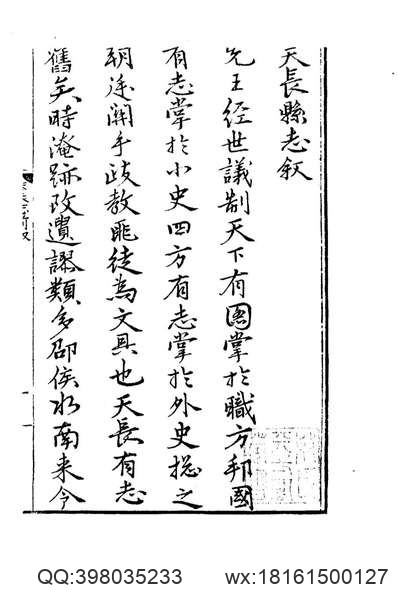 天長縣志叙
先王經世議制天下有圖掌於職方邦國
有志掌於小史四方有志掌於外史揔之
朝廷關乎政教匪徒為文具也天長有志
舊矣時淹跡改遺謬類多邵侯水南来今
QQ:398035233 wx:18161500127